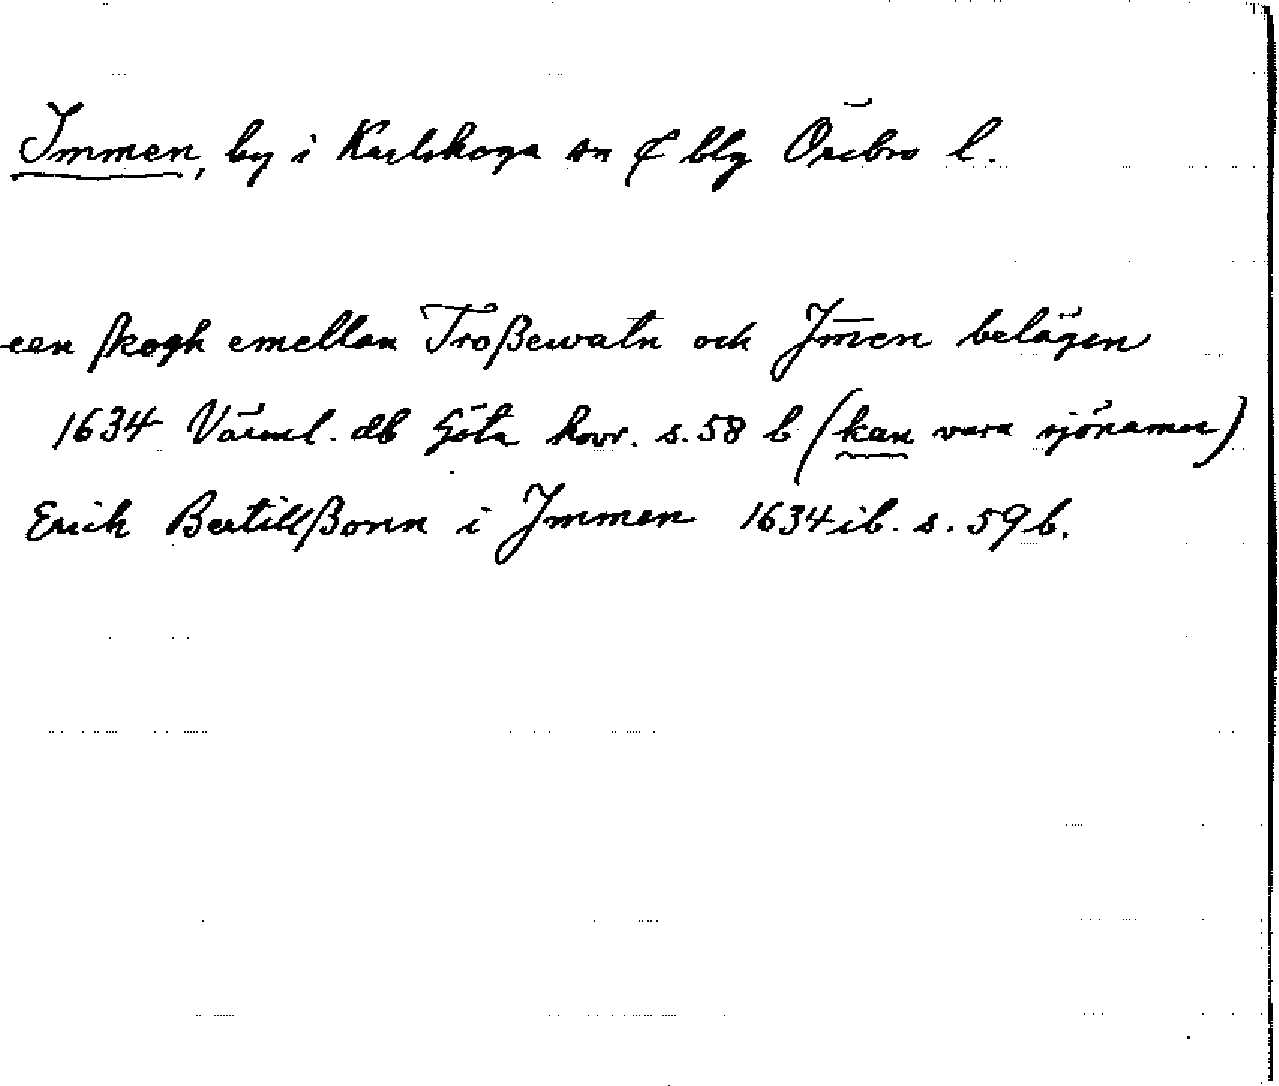 Immen, by i Karlskoga sn ¢ blg Örebro l.
een skogh emellan Troßewatn och Jm̄en belägen
1634 Värml. db Göta hovr. s. 58 b (kan vara sjönamn)
Erich Bertillßonn i Jmmen 1634 ib. s. 59 b.